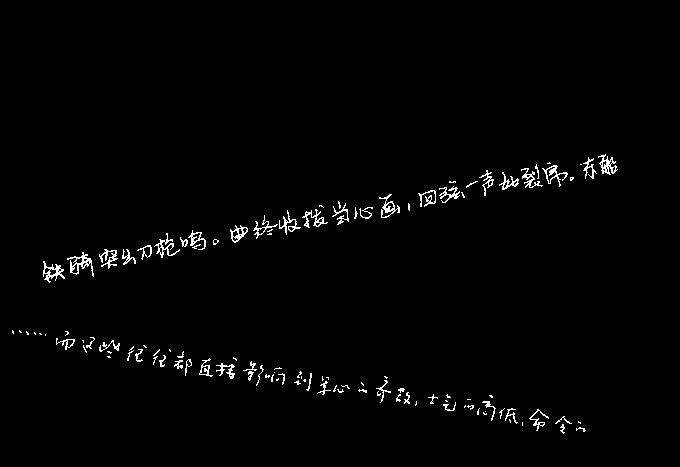 铁骑突出刀枪鸣。曲终收拨当心画，四弦一声如裂帛。东船
……而这些往往都直接影响到军心的齐散，士气的高低，命令的